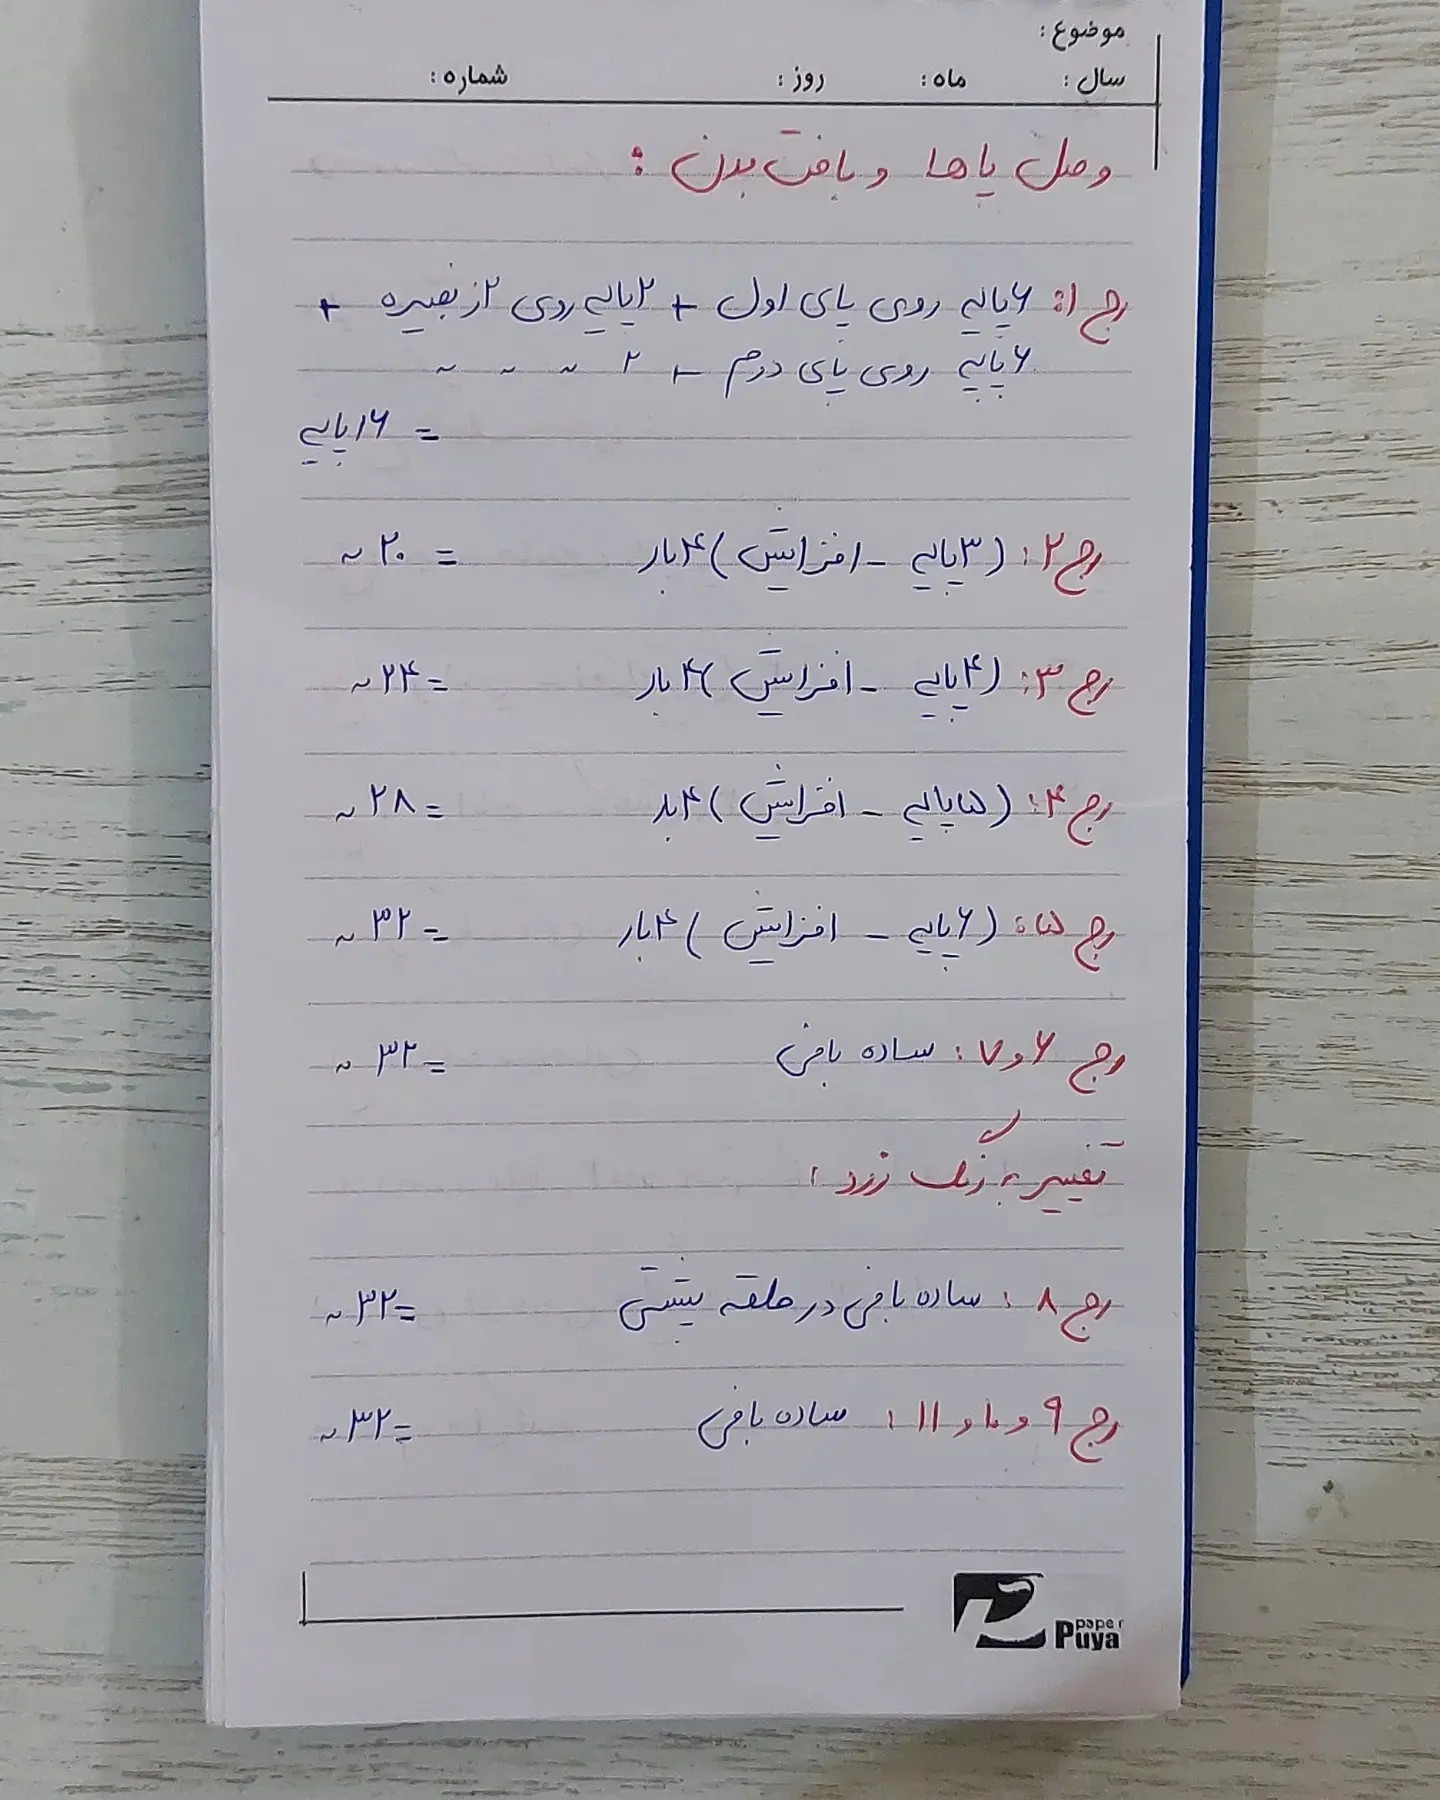 موضوع:
سال: ماه: روز: شماره:
وصل پاها و بافت بدن:
رج ۱: ۶پایه روی پای اول + ۲پایه روی ۲ زنجیره +
۶پایه روی پای دوم + ۲ ~ ~ ~
= ۱۶پایه
رج ۲: (۳پایه - افزایش)۴بار = ۲۰ ~
رج ۳: (۴پایه - افزایش)۴بار = ۲۴ ~
رج ۴: (۵پایه - افزایش)۴بار = ۲۸ ~
رج ۵: (۶پایه - افزایش)۴بار = ۳۲ ~
رج ۶ و ۷: ساده بافی = ۳۲ ~
تغییر به رنگ زرد:
رج ۸: ساده بافی در حلقه پشتی = ۳۲ ~
رج ۹ و ۱۰ و ۱۱: ساده بافی = ۳۲ ~
paper
Puya